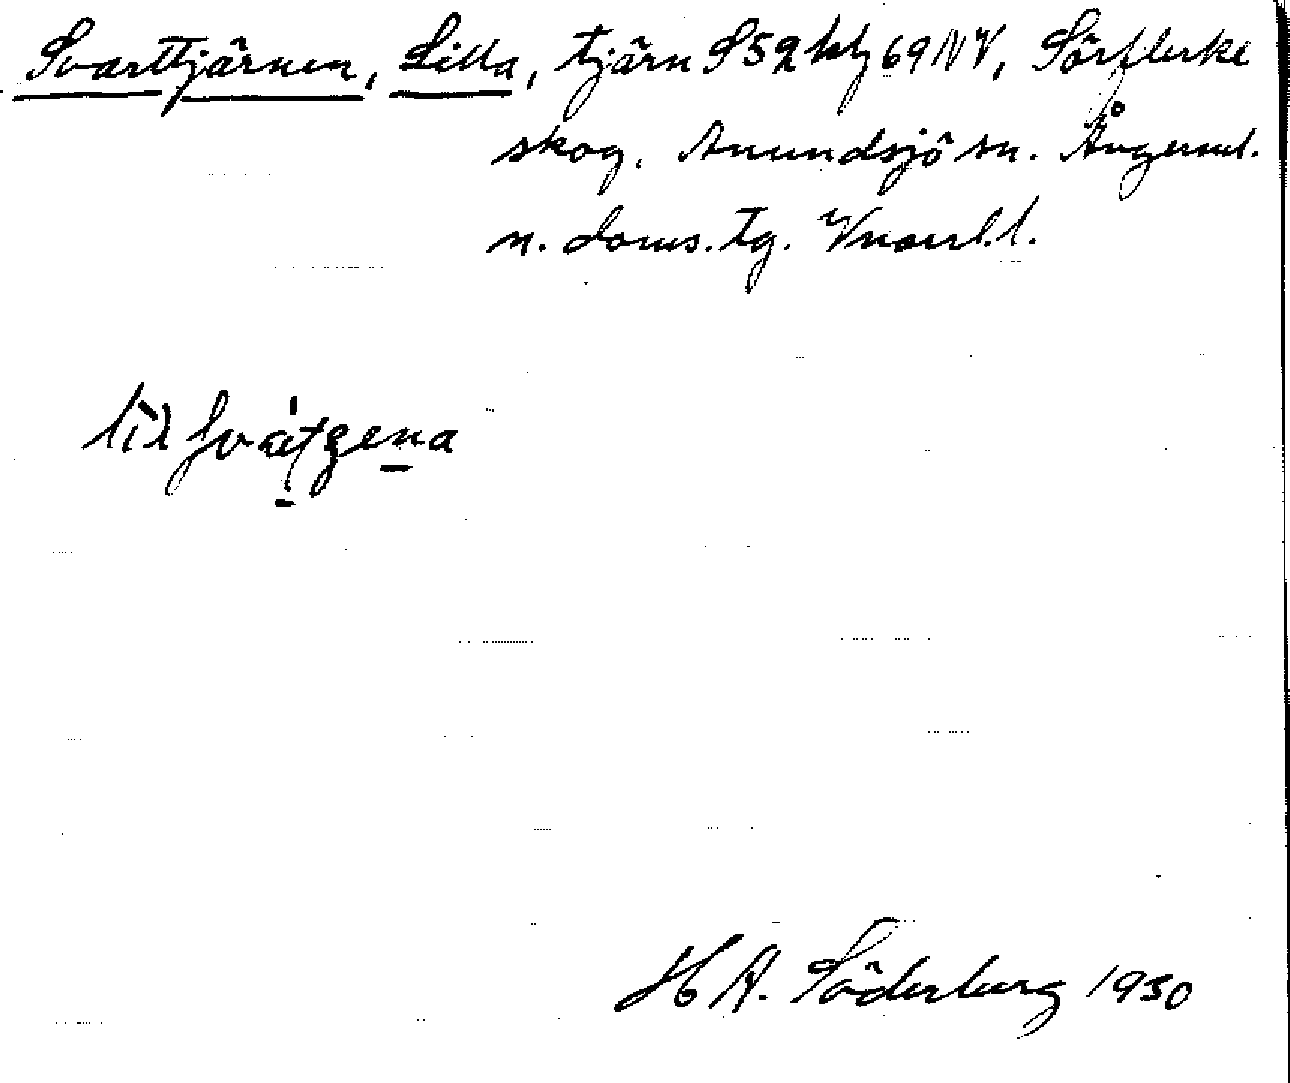 Svarttjärnen, Lilla, tjärn S 52 kbl 69 NV, Sörflerke
skog. Anundsjö sn. Ångerml.
n. doms. tg. Vnorrl. l.
lìl svátgena
H A. Söderberg 1930